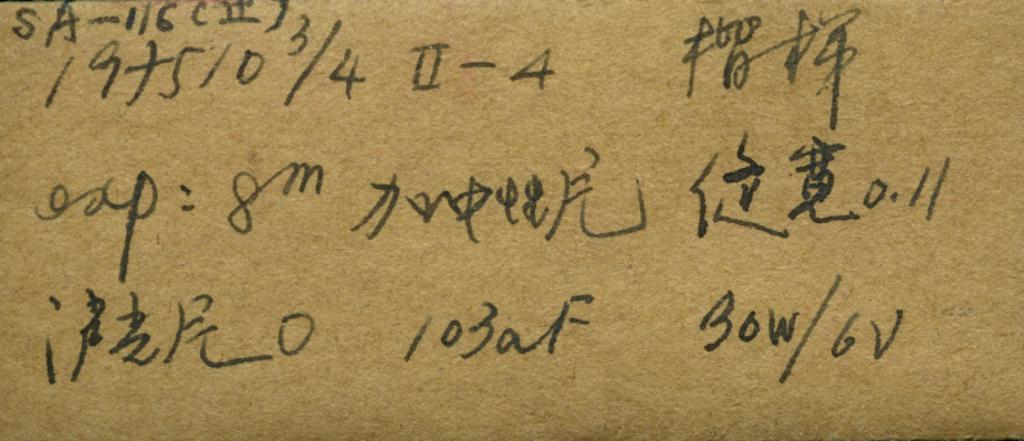 SA-116(Ⅱ)
1975 10 3/4 Ⅱ-4 楷梯
exp: 8m 加中性尾 缝宽0.11
消光尾0 103aF 30W/6V